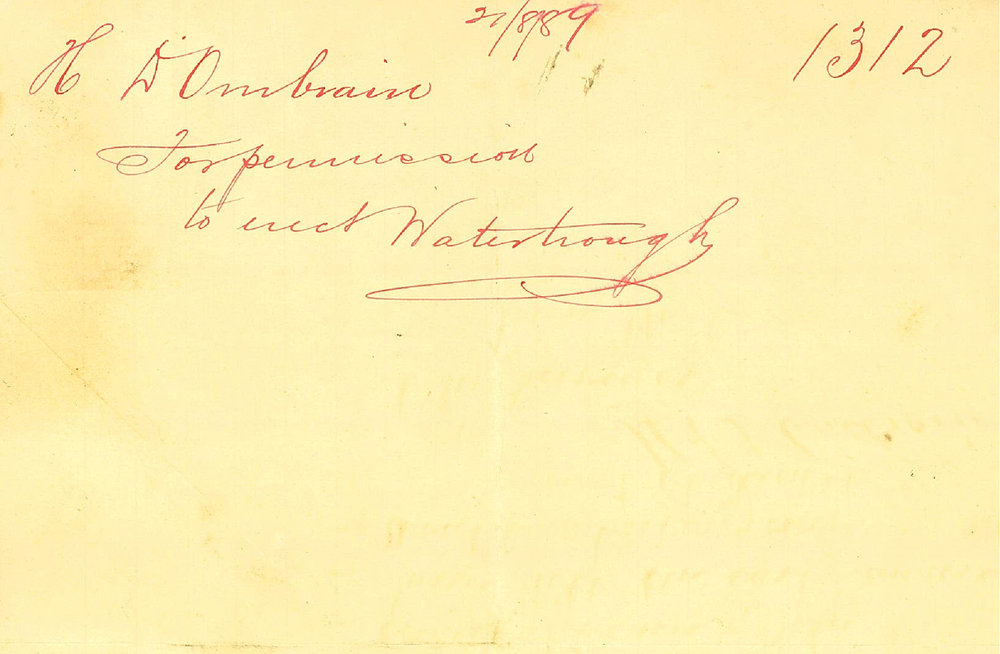 27/8/89
1312
H D'Ombrain
For permission
to erect Watertrough